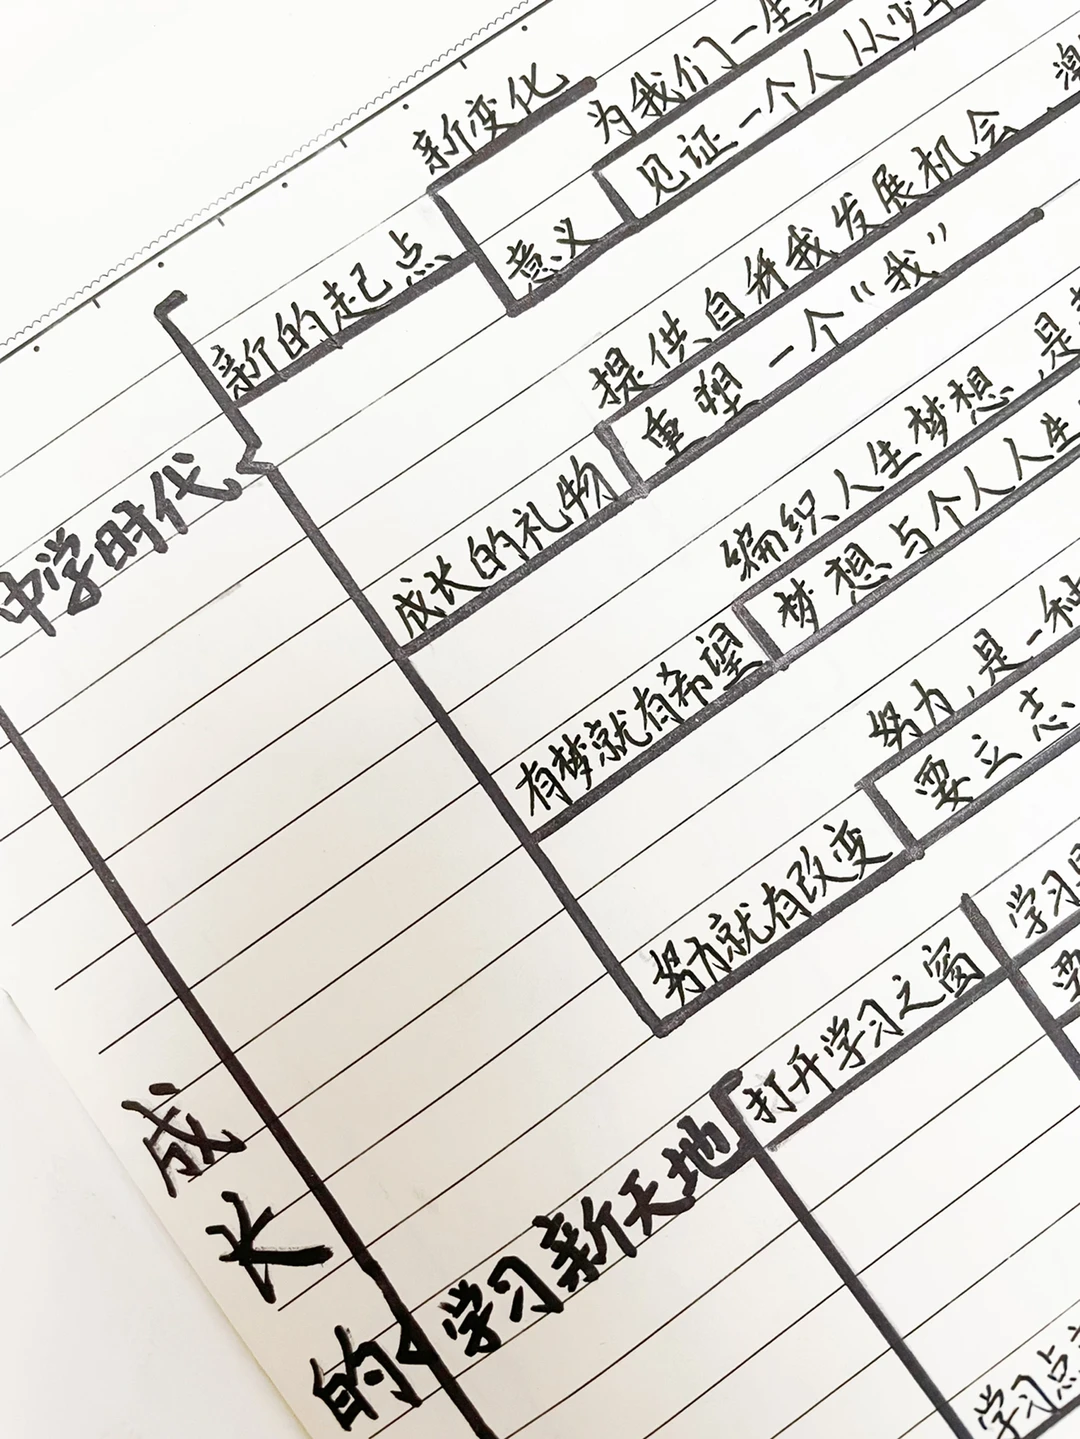 新变化
为我们一生
见证一个人从少年
意义
新的起点
提供自我发展机会
重塑一个“我”
成长的礼物
编织人生梦想，是
梦想与个人人生
有梦就有希望
努力，是一种
要立志
努力就有改变
中学时代
学习
要
打开学习之窗
学习新天地
学习点
成长的